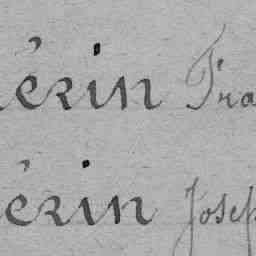 érin Fra
érin Josep